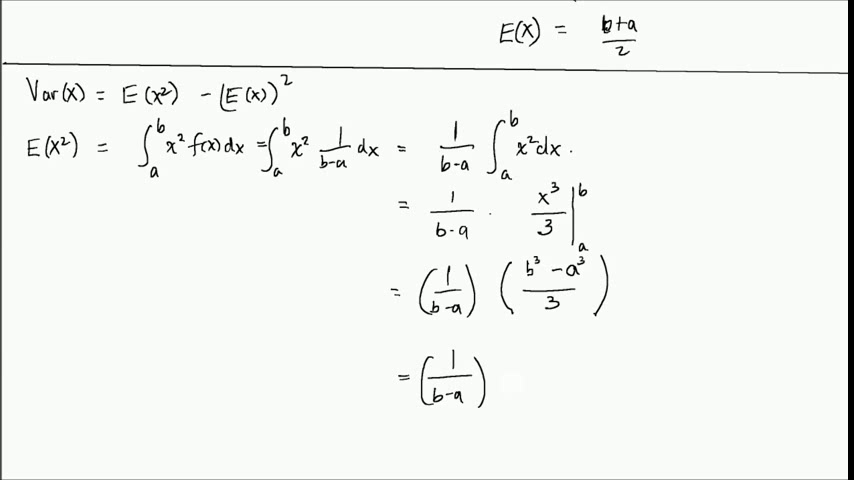 E(X) = b+a/2
Var(X) = E(X²) - (E(X))²
E(X²) = ∫_a^b x² f(x) dx = ∫_a^b x² 1/(b-a) dx = 1/(b-a) ∫_a^b x² dx.
= 1/(b-a) · x³/3 |_a^b
= (1/(b-a)) ((b³ - a³)/3)
= (1/(b-a))